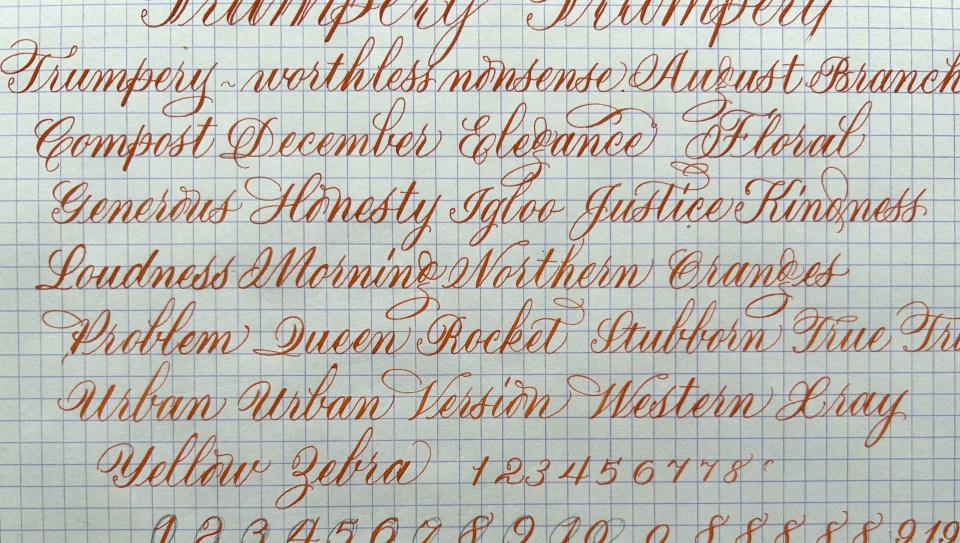 Trumpery Trumpery
Trumpery ~ worthless nonsense. August Branch
Compost December Elegance Floral
Generous Honesty Igloo Justice Kindness
Loudness Morning Northern Oranges
Problem Queen Rocket Stubborn True Tru
Urban Urban Version Western Xray
Yellow Zebra 1 2 3 4 5 6 7 7 7 8
1 2 3 4 5 6 7 8 9 10 0 8 8 8 8 8 9 19